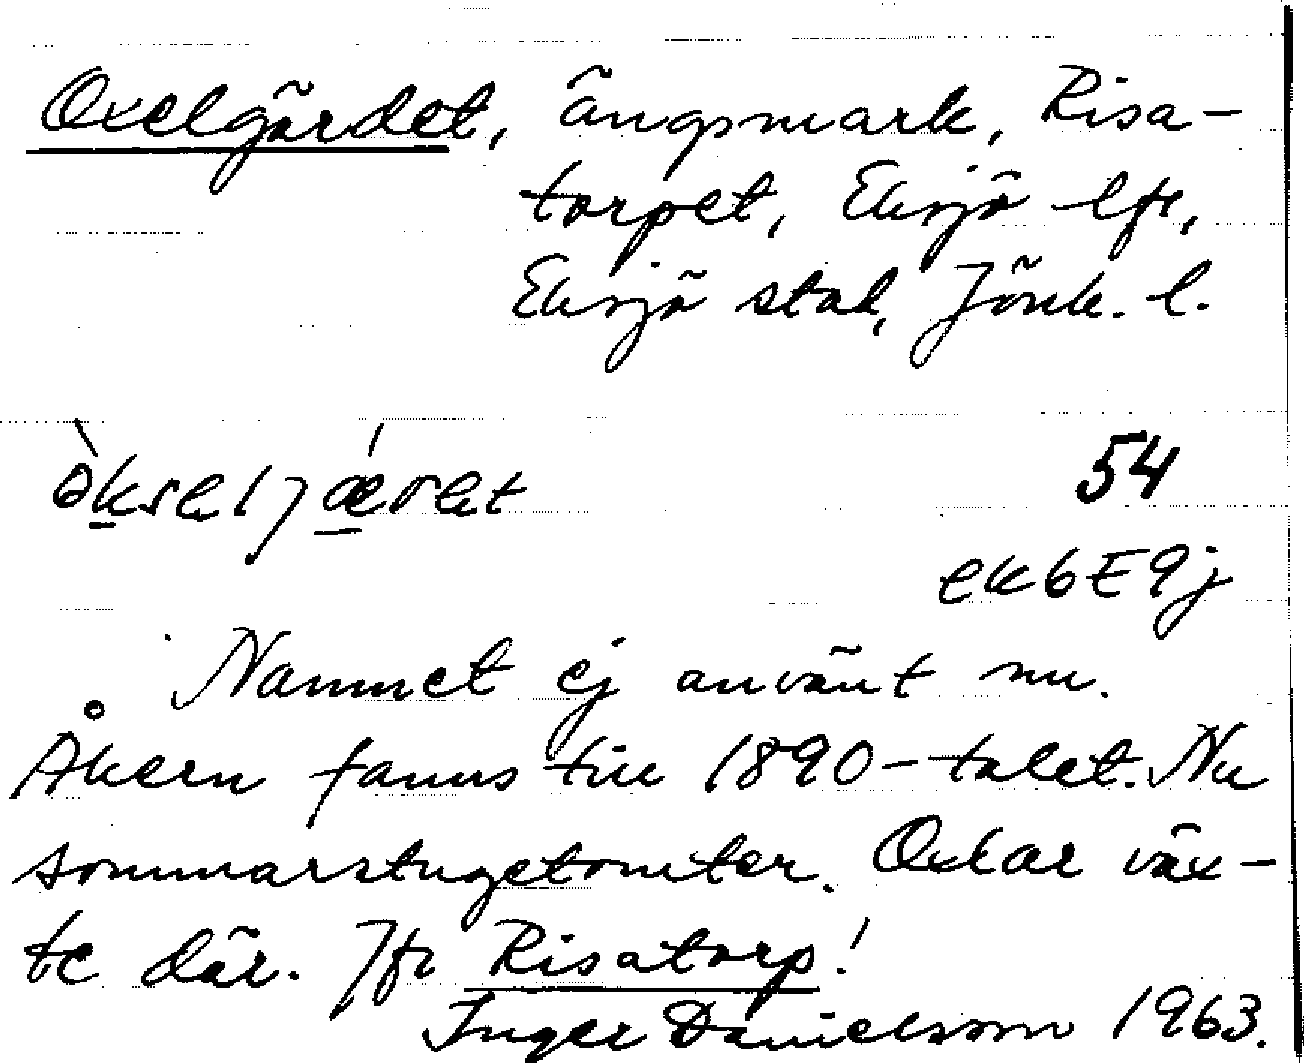 Oxelgärdet, ängsmark, Risa-
torpet, Eksjö lfs,
Eksjö stad, Jönk. l.
òkseljǽret
54
ek6E9j
Namnet ej använt nu.
Åkern fanns till 1890-talet. Nu
sommarstugetomter. Oxlar väx-
te där. Jfr Risatorp!
Inger Danielsson 1963.